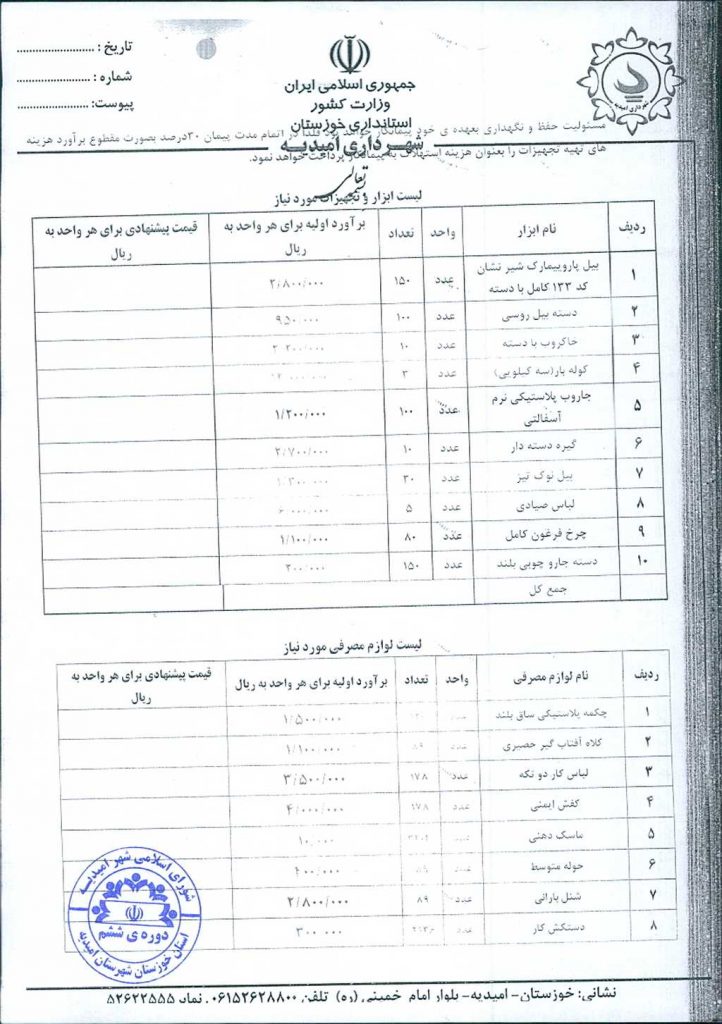 تاریخ : ..........................
شماره : ..........................
پیوست: ........................
جمهوری اسلامی ایران
وزارت کشور
استانداری خوزستان
شهرداری امیدیه
شهرداری امیدیه
مسئولیت حفظ و نگهداری بعهده ی خود پیمانکار خواهد بود در اتمام مدت پیمان ۳۰درصد بصورت مقطوع برآورد هزینه
های تهیه تجهیزات را بعنوان هزینه استهلاک به پیمانکار پرداخت خواهد نمود.
لیست ابزار و تجهیزات مورد نیاز
ردیف نام ابزار واحد تعداد برآورد اولیه برای هر واحد به ریال قیمت پیشنهادی برای هر واحد به ریال
۱ بیل پاروبیمارک شیر نشان کد ۱۳۳ کامل با دسته عدد ۱۵۰ ۲/۸۰۰/۰۰۰
۲ دسته بیل روسی عدد ۱۰۰ ۹۵۰/۰۰۰
۳ خاکروب با دسته عدد ۱۰
۴ کوله بار(سه کیلویی) عدد ۳
۵ جاروب پلاستیکی نرم آسفالتی عدد ۱۰۰ ۱/۲۰۰/۰۰۰
۶ گیره دسته دار عدد ۱۰ ۲/۷۰۰/۰۰۰
۷ بیل نوک تیز عدد ۳۰
۸ لباس صیادی عدد ۵
۹ چرخ فرغون کامل عدد ۸۰ ۱/۱۰۰/۰۰۰
۱۰ دسته جارو چوبی بلند عدد ۱۵۰
جمع کل
لیست لوازم مصرفی مورد نیاز
ردیف نام لوازم مصرفی واحد تعداد برآورد اولیه برای هر واحد به ریال قیمت پیشنهادی برای هر واحد به ریال
۱ چکمه پلاستیکی ساق بلند عدد ۱/۵۰۰/۰۰۰
۲ کلاه آفتاب گیر حصیری عدد ۸۹ ۱/۱۰۰/۰۰۰
۳ لباس کار دو تکه عدد ۱۷۸ ۳/۵۰۰/۰۰۰
۴ کفش ایمنی عدد ۱۷۸ ۴/۰۰۰/۰۰۰
۵ ماسک دهنی عدد ۱۰/۰۰۰
۶ حوله متوسط عدد
۷ شنل بارانی عدد ۸۹ ۲/۸۰۰/۰۰۰
۸ دستکش کار عدد ۳۰۰/۰۰۰
شورای اسلامی شهر امیدیه
دوره ی ششم
استان خوزستان شهرستان امیدیه
نشانی: خوزستان- امیدیه- بلوار امام خمینی (ره) تلفن: ۰۶۱۵۲۶۲۸۸۰۰ نمابر ۵۲۶۲۲۵۵۵